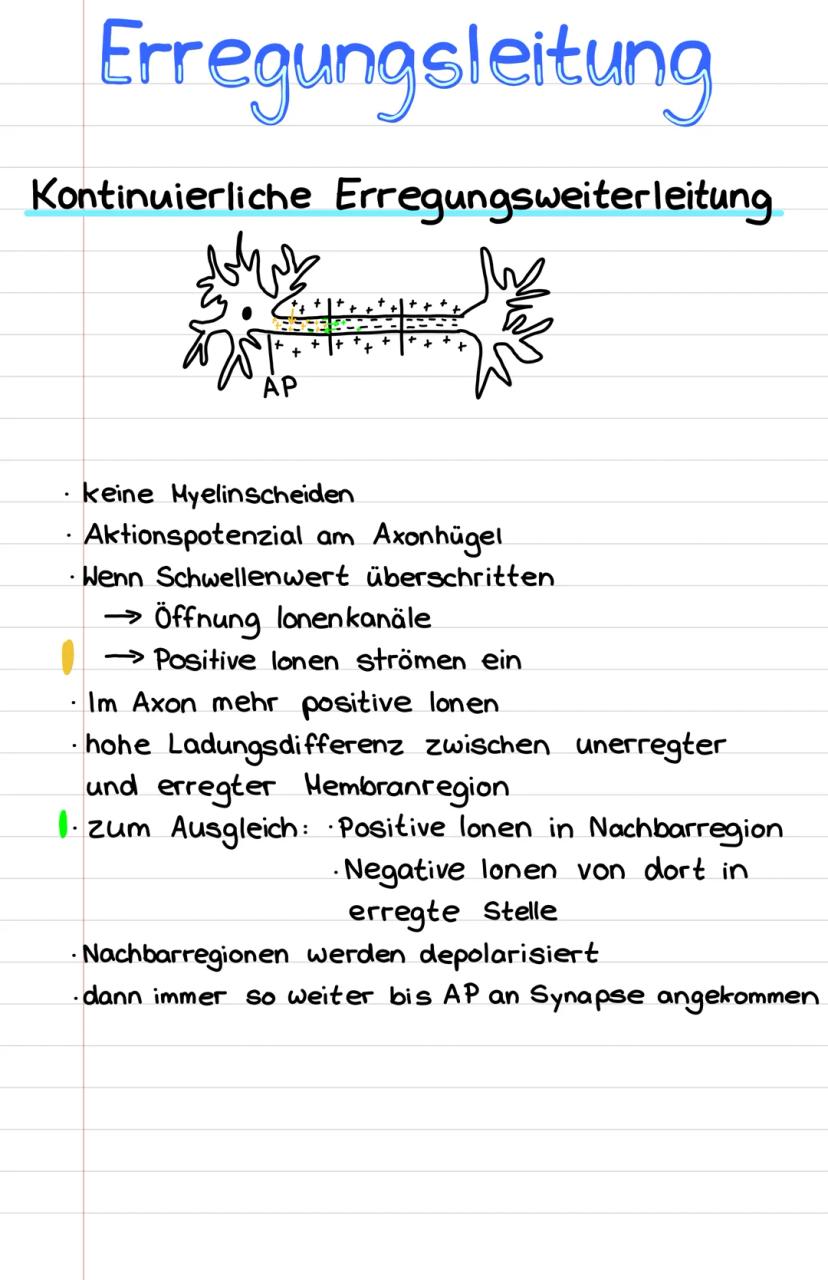 Erregungsleitung
Kontinuierliche Erregungsweiterleitung
AP
· keine Myelinscheiden
· Aktionspotenzial am Axonhügel
· Wenn Schwellenwert überschritten
→ Öffnung Ionenkanäle
→ Positive Ionen strömen ein
· Im Axon mehr positive Ionen
· hohe Ladungsdifferenz zwischen unerregter
und erregter Membranregion
· zum Ausgleich: · Positive Ionen in Nachbarregion
· Negative Ionen von dort in
erregte Stelle
· Nachbarregionen werden depolarisiert
· dann immer so weiter bis AP an Synapse angekommen